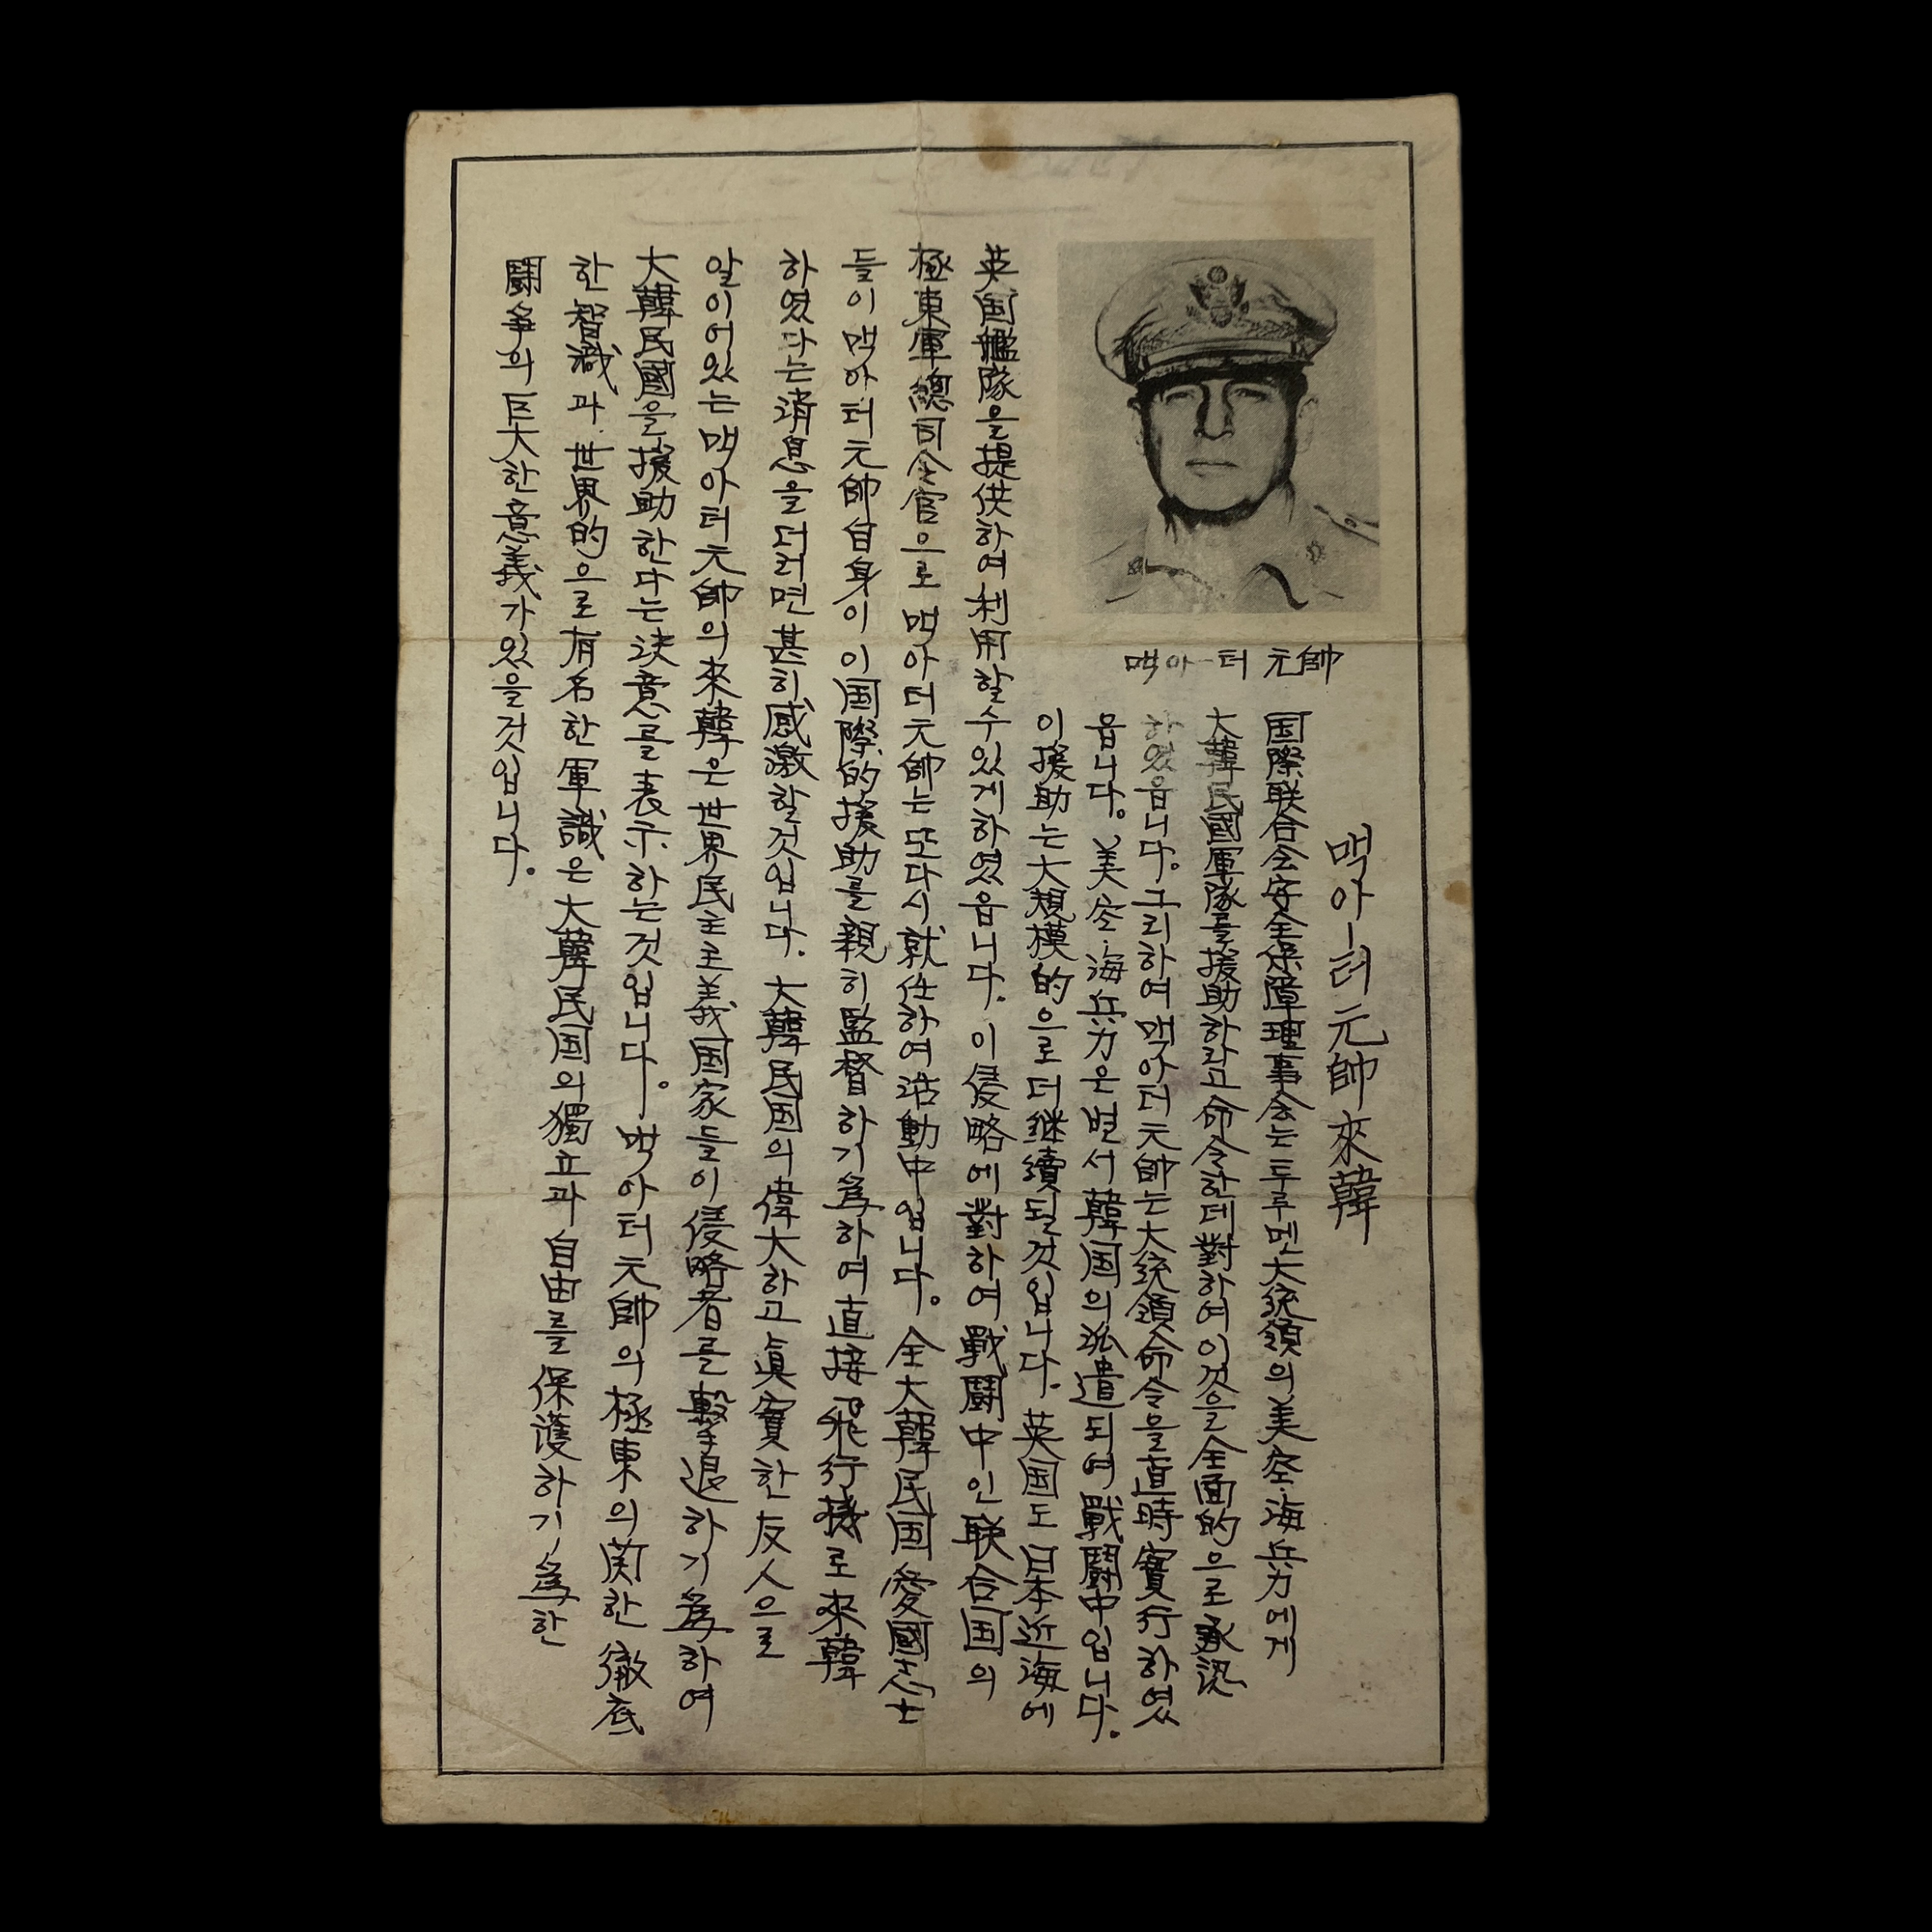 맥아-터 元帥來韓
맥아-터 元帥
国際联合会安全保障理事会는 투루멘大統領의 美空·海兵力에게
大韓民國軍隊를 援助하라고 命令한데 對하여 이것을 全面的으로 承認
하였읍니다。그리하여 맥아터元帥는 大統領命令을 直時 實行하였
읍니다。美空·海兵力은 벌서 韓国의 派遣되여 戰鬪中입니다.
이 援助는 大規模的으로 더 継續될것입니다. 英国도 日本近海에
英国艦隊을 提供하여 利用할수있게하였읍니다. 이 侵略에 對하여 戰鬪中인 联合国의
極東軍總司令官으로 맥아더元帥는 또다시 就任하여 活動中입니다。全大韓民国愛國志士
들이 맥아터元帥自身이 이 国際的援助를 親히 監督하기 爲하여 直接 飛行機로 來韓
하였다는 消息을 더러면 甚히 感激할것입니다. 大韓民国의 偉大하고 眞實한 友人으로
알이어있는 맥아터元帥의 來韓은 世界民主主義国家들이 侵略者를 擊退하기 爲하여
大韓民國을 援助한다는 決意를 表示하는것입니다。맥아터元帥의 極東의 関한 徹底
한 智識과 世界的으로 有名한 軍識은 大韓民国의 獨立과 自由를 保護하기 爲한
鬪爭의 巨大한 意義가 있을것입니다.